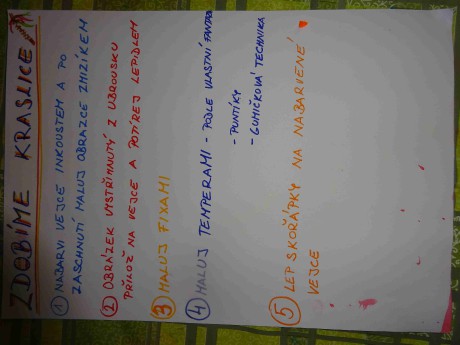 ZDOBÍME KRASLICE
1 NABARVI VEJCE INKOUSTEM A PO
ZASCHNUTÍ MALUJ OBRAZCE ZMIZÍKEM
2 OBRÁZEK VYSTŘIHNUTÝ Z UBROUSKU
PŘILOŽ NA VEJCE A POTÍREJ LEPIDLEM
3 MALUJ FIXAMI
4 MALUJ TEMPERAMI - PODLE VLASTNÍ FANTAZIE
- PUNTÍKY
- GUMIČKOVÁ TECHNIKA
5 LEP SKOŘÁPKY NA NABARVENÉ
VEJCE